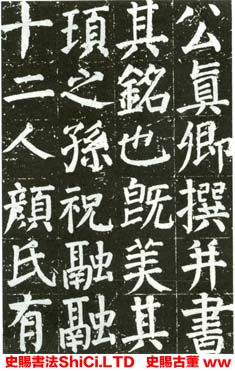 公真卿撰并書
其銘也既美其
頊之孫祝融融
十二人顏氏有
史賜書法ShiCi.LTD 史賜古董 ww